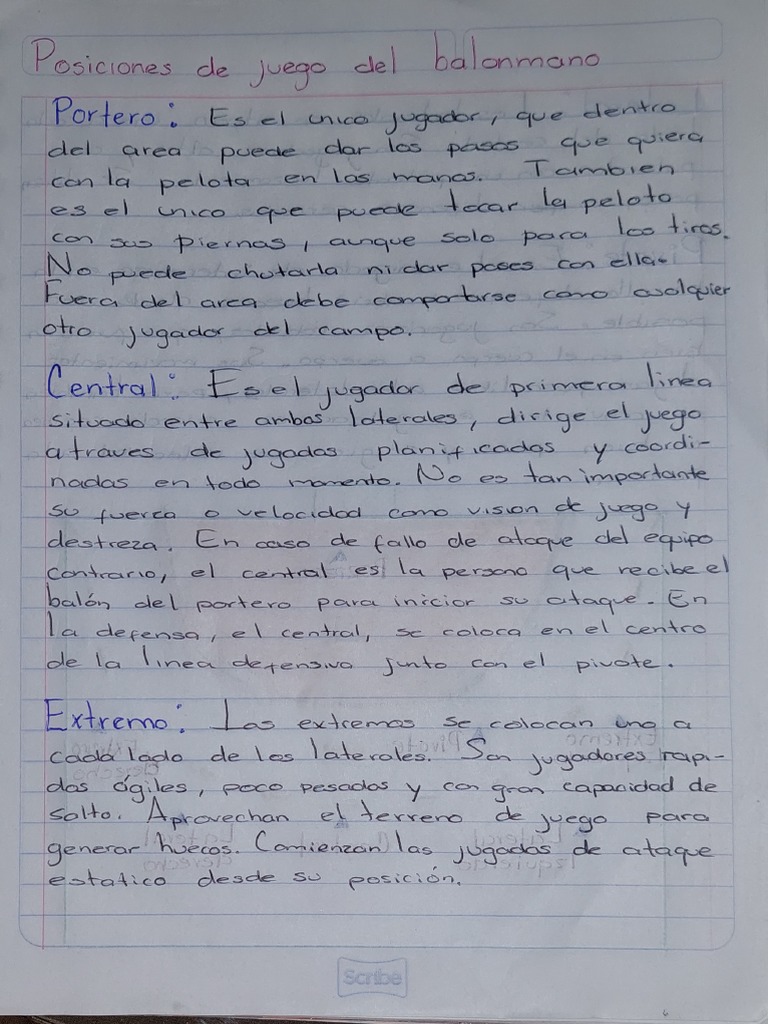 Posiciones de juego del balonmano
Portero: Es el unico jugador, que dentro
del area puede dar los pasos que quiera
con la pelota en las manos. Tambien
es el unico que puede tocar la pelota
con sus piernas, aunque solo para los tiros.
No puede chutarla ni dar pases con ella.
Fuera del area debe comportarse como cualquier
otro jugador del campo.
Central: Es el jugador de primera linea
situado entre ambos laterales, dirige el juego
a traves de jugadas planificadas y coordi-
nadas en todo momento. No es tan importante
su fuerza o velocidad como vision de juego y
destreza. En caso de fallo de ataque del equipo
contrario, el central es la persona que recibe el
balón del portero para iniciar su ataque. En
la defensa, el central, se coloca en el centro
de la linea defensiva junto con el pivote.
Extremo: Los extremos se colocan uno a
cada lado de los laterales. Son jugadores rapi-
dos ágiles, poco pesados y con gran capacidad de
salto. Aprovechan el terreno de juego para
generar huecos. Comienzan las jugadas de ataque
estatico desde su posición.
Scribe